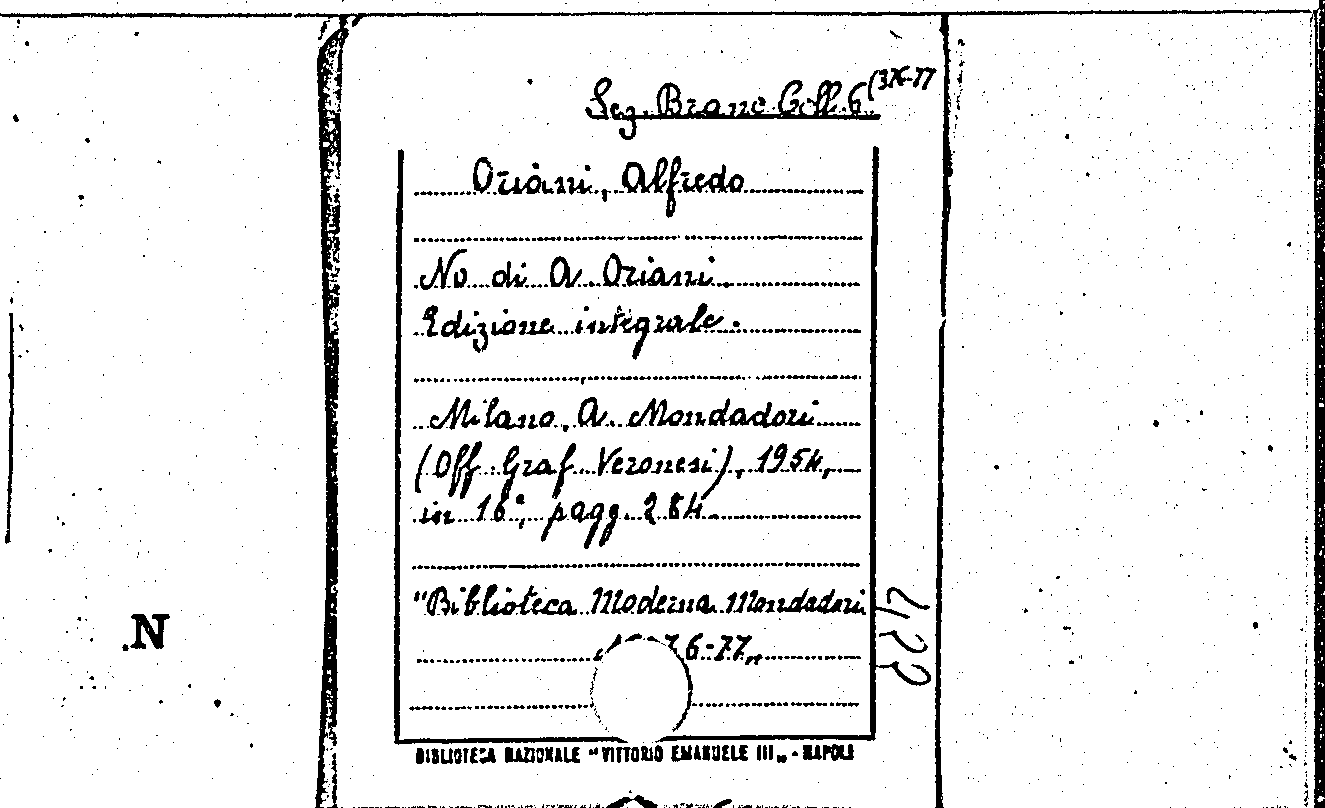 Sez. Branc. Coll. 6 (376-77
Oriani, Alfredo
No di A. Oriani.
Edizione integrale.
Milano, A. Mondadori
(Off. Graf. Veronesi), 1954,
in 16°, pagg. 284.
"Biblioteca Moderna Mondadori
6-77"
422
N
BIBLIOTECA NAZIONALE "VITTORIO EMANUELE III" - NAPOLI